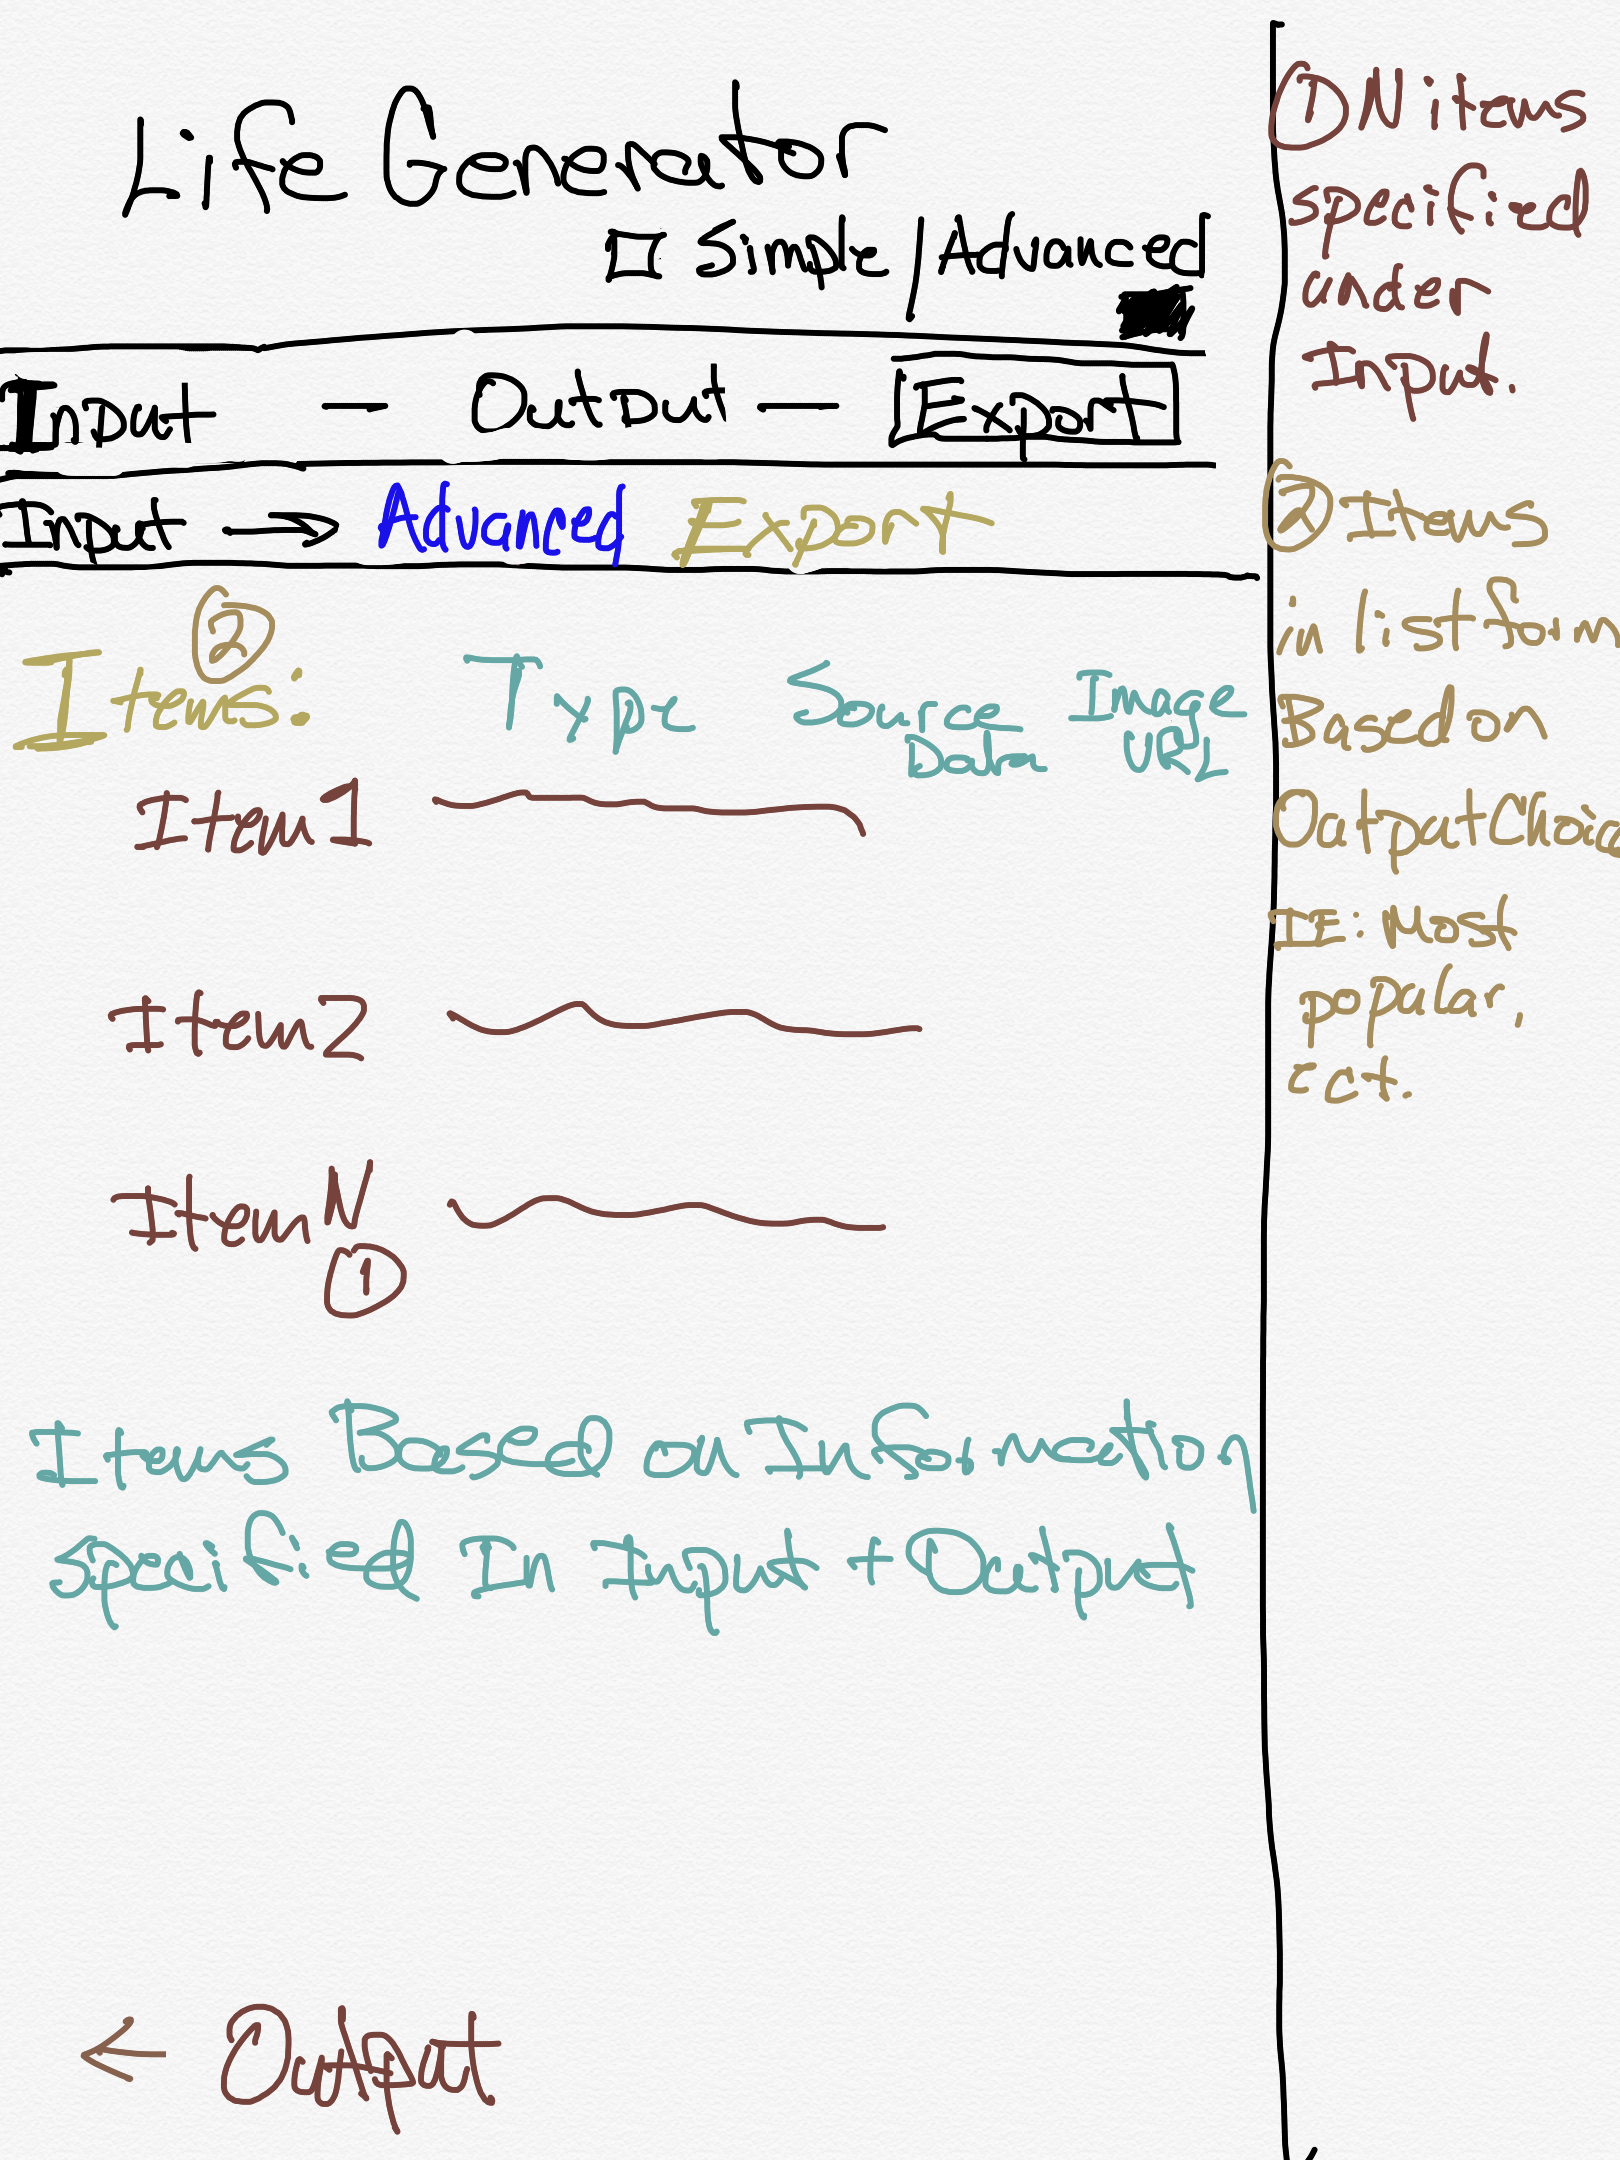 Life Generator
Simple / Advanced
Input — Output — Export
Input → Advanced Export
②
Items: Type Source Data Image URL
Item 1
Item 2
Item N
①
Items Based on Information
specified In Input + Output
← Output
① N items
specified
under
Input.
② Items
in list form
Based on
Output Choice
IE: Most
popular,
ect.